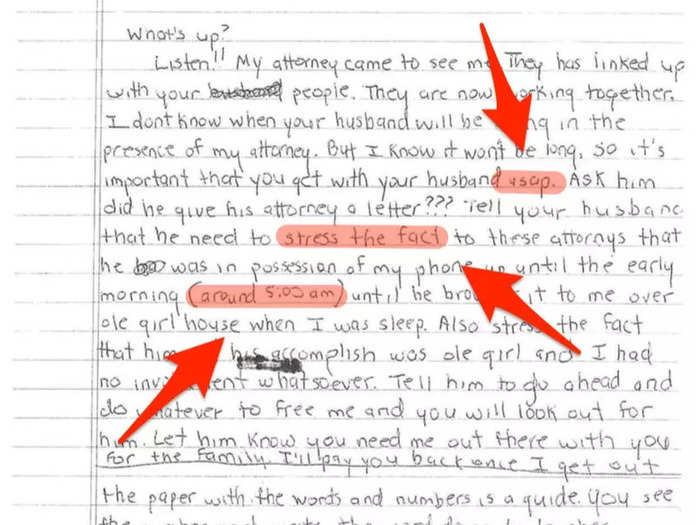 What's up?
Listen!! My attorney came to see me. They has linked up
with your people. They are now working together.
I dont know when your husband will be in the
presence of my attorney. But I know it won't be long, so it's
important that you get with your husband asap. Ask him
did he give his attorney a letter??? Tell your husband
that he need to stress the fact to these attornys that
he was in possession of my phone up until the early
morning (around 5:00 am) until he brought it to me over
ole girl house when I was sleep. Also stress the fact
that him accomplish was ole girl and I had
no involvement whatsoever. Tell him to go ahead and
do whatever to free me and you will look out for
him. Let him know you need me out there with you
for the family. I'll pay you back once I get out
the paper with the words and numbers is a guide. You see